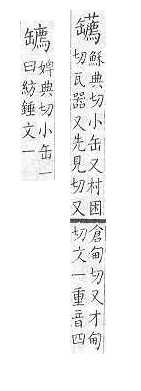 𦉥
蘇典切小缶又村困
切瓦器又先見切又
倉甸切又才甸
切文一重音四
婢典切小缶一
曰紡錘文一